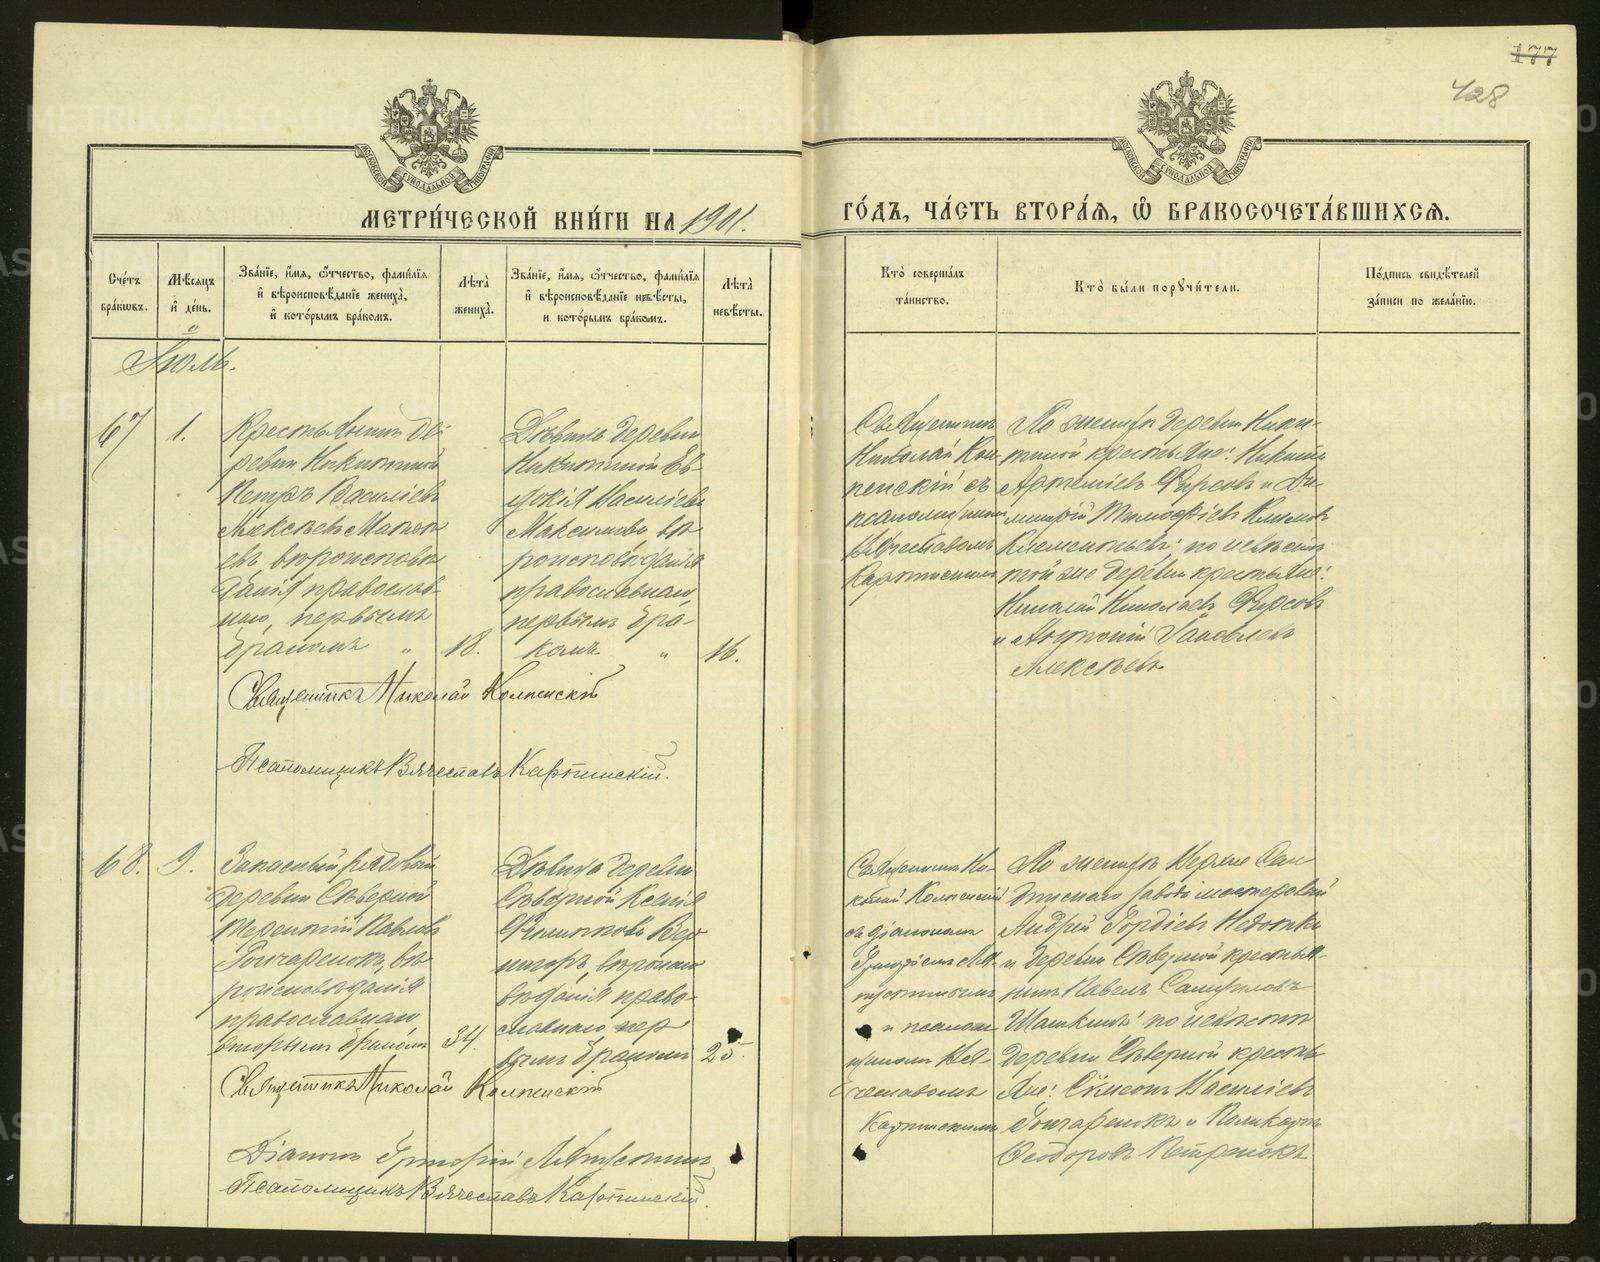 177
428
МЕТРИ́ЧЕСКОЙ КНИ́ГИ НА 1901.
ГО́ДЪ, ЧА́СТЬ ВТОРА́Я, Ѡ҆ БРАКОСОЧЕТА́ВШИХСЯ.
Сче́тъ бра́кωвъ.
Мѣ́сяцъ и҆ де́нь.
Зва́нїе, и҆́мя, ѻ҆́тчество, фами́лїя и҆ вѣроисповѣ́данїе жениха̀, и҆ кото́рымъ бра́комъ.
Лѣта̀ жениха̀.
Зва́нїе, и҆́мя, ѻ҆́тчество, фами́лїя и҆ вѣроисповѣ́данїе невѣ́сты, и кото́рымъ бра́комъ.
Лѣта̀ невѣ́сты.
Кто̀ соверша́лъ та́инство.
Кто̀ бы́ли порꙋчи́тели.
По́дпись свидѣ́телей за́писи по жела́нїю.
Іюль.
67
1.
Крестьянинъ де-
ревни Никитиной
Петръ Василіевъ
Алексѣевъ
вѣроисповѣ-
данія православ-
наго, первымъ
бракомъ "
18.
Дѣвица деревни
Никитиной Ев-
докія Василіева
Максимова, вѣ-
роисповѣданія
православнаго,
первымъ бра-
комъ "
16.
Священникъ
Николай Кол-
пенскій съ
псаломщикомъ
Вячеславомъ
По женихѣ деревни Ники-
тиной крестьяне: Никита
Артеміевъ Фирсовъ и Ди-
митрій Тимофѣевъ
по невѣстѣ
той же деревни крестьяне:
Николай Николаевъ Фирсовъ
и Яковлевъ
Алексѣевъ
Священникъ Николай Колпенскій
Псаломщикъ Вячеславъ
68.
9.
Запасный рядовой
деревни Сѣверной
Терентій Павловъ
Гончаренокъ, вѣ-
роисповѣданія
православнаго
вторымъ бракомъ
34.
Дѣвица деревни
Сѣверной Ксенія
вѣроиспо-
вѣданія право-
славнаго пер-
вымъ бракомъ
25.
Священникъ Ни-
колай Колпенскій
съ діакономъ
Григоріемъ
и псалом-
щикомъ Вя-
чеславомъ
По женихѣ
завода мастеровой
Андрей Гордѣевъ
и деревни Сѣверной крестья-
нинъ Павелъ Самуиловъ
по невѣстѣ
деревни Сѣверной кресть-
яне: Симеонъ Василіевъ
Гончаренокъ и Поликарпъ
Ѳеодоровъ Петренокъ
Священникъ Николай Колпенскій
Діаконъ Григорій
Псаломщикъ Вячеславъ
METRIKI.GASO-URAL.RU